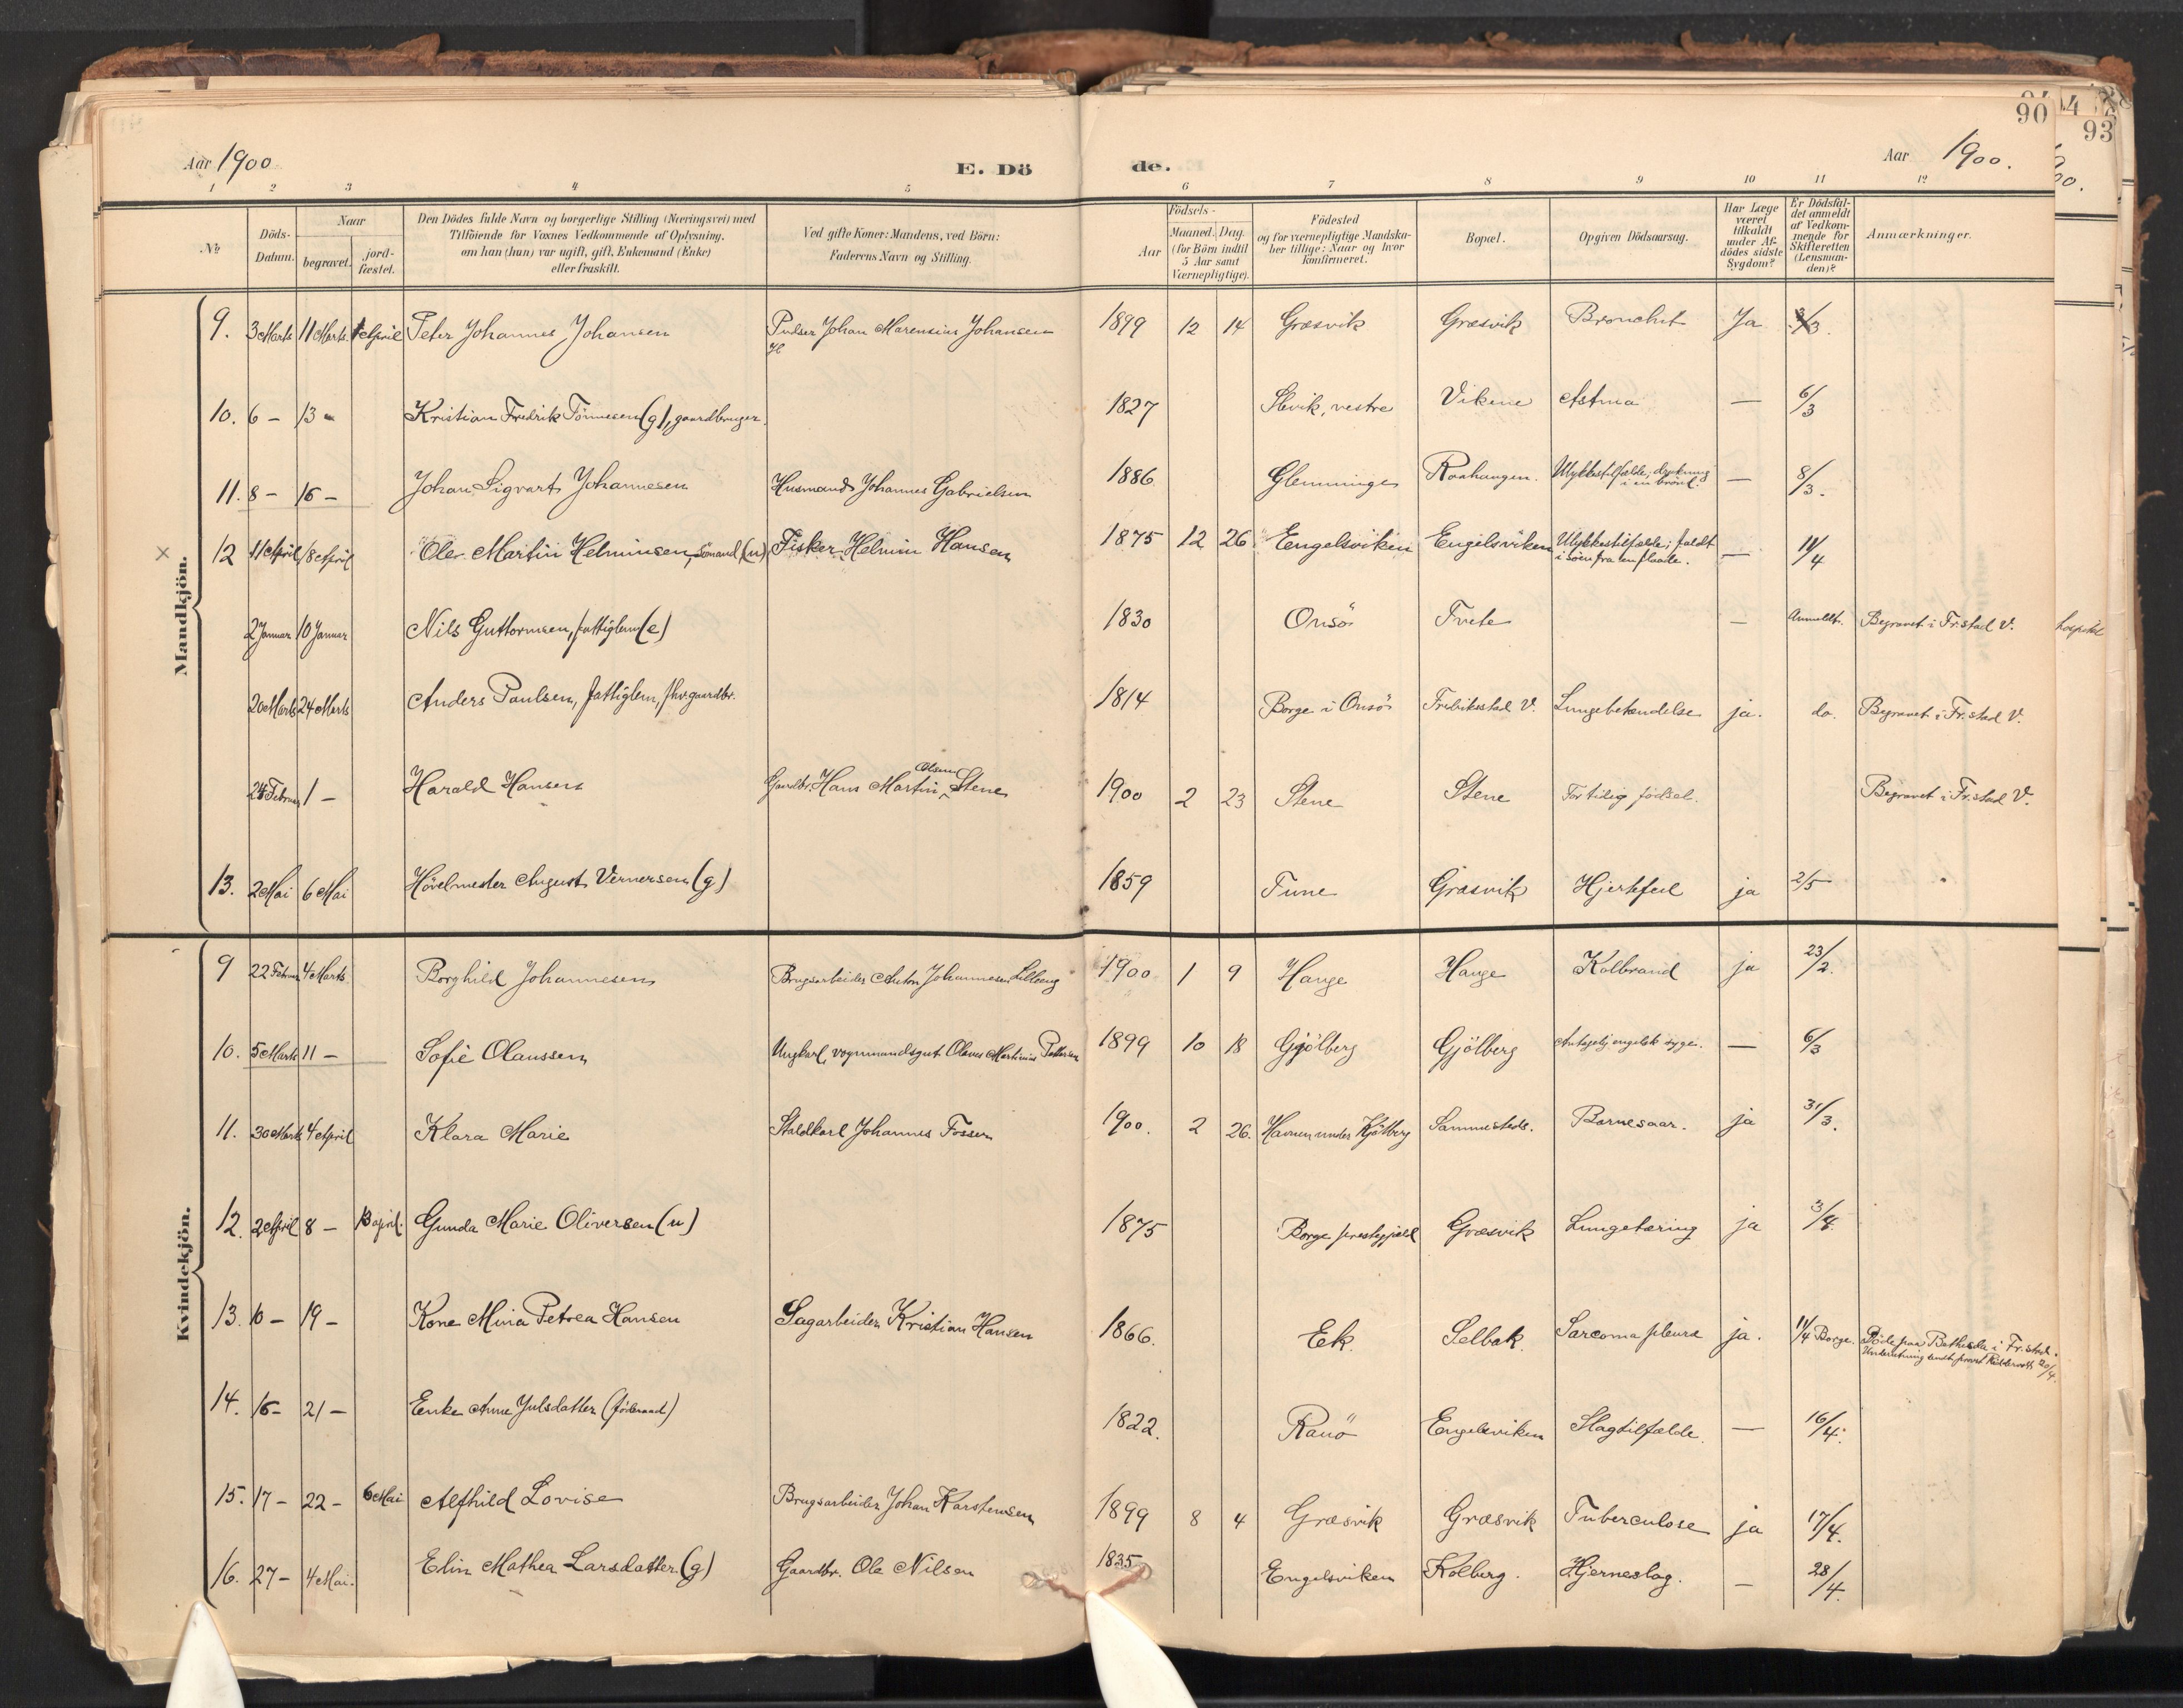 90
4
93
Aar 1900
E. Dö
de.
Aar 1900.
1 2 3 4 5 6 7 8 9 10 11 12
No
Döds-Datum.
Naar
begravet.
jord-fæstet.
Den Dödes fulde Navn og borgerlige Stilling (Næringsvei) med
Tilföiende for Voxnes Vedkommende af Oplysning,
om han (hun) var ugift, gift, Enkemand (Enke)
eller fraskilt.
Ved gifte Koner: Mandens, ved Börn:
Faderens Navn og Stilling.
Födsels-
Aar
Maaned. Dag.
(for Börn indtil
5 Aar samt
Værnepligtige).
Födested
og for værnepligtige Mandska-
ber tillige: Naar og hvor
konfirmeret.
Bopæl.
Opgiven Dödsaarsag.
Har Læge
været
tilkaldt
under Af-
dödes sidste
Sygdom?
Er Dödsfal-
det anmeldt
af Vedkom-
mende for
Skifteretten
(Lensman-
den)?
Anmærkninger.
Mandkjön.
9. 3 Marts 11 Marts. 1 April Peter Johannes Johansen Pudser Johan Marensius Johansen 1899 12 14 Græsvik Græsvik Bronchit Ja 3/3.
10. 6 - 13 - Kristian Fredrik Tönnesen (g), gaardbruger. 1827 Slevik, vestre Vikene Astma — 6/3
11. 8 - 16 - Johan Sigvart Johannesen Husmand Johannes Gabrielsen 1886 Glemminge Ulykkestilfælde; drukning
i en brönd. — 8/3.
× 12 11 April 18 April Ole Martin Helminsen, sömand (u) Fisker Helmin Hansen 1875 12 26 Engelsviken Engelsviken Ulykkestilfælde; faldt
i söen fra en flaade. — 11/4
2 Januar 10 Januar Nils Guttormsen, fattiglem (e) 1830 Onsö Tvete — Anmeldt. Begravet i Fr.stad V.
hospital
20 Marts 24 Marts Anders Paulsen, fattiglem, fhv. gaardbr. 1814 Borge i Onsö Fredriksstad V. Lungebetændelse ja. do. Begravet i Fr.stad V.
24 Februar 1 - Harald Hansen Gaardbr. Hans Martin Olsen Stene 1900 2 23 Stene Stene For tidig födsel. Begravet i Fr.stad V.
13. 2 Mai 6 Mai Hövelmester August Vernersen (g) 1859 Tune Græsvik Hjertefeil ja 2/5
Kvindekjön.
9 22 Februar 4 Marts Borghild Johannesen Brugsarbeider Anton Johannesen Lilleeng 1900 1 9 Hauge Hauge Kolbrand ja 23/2.
10. 5 Marts 11 - Sofie Olaussen Ungkarl, vognmandsgut Olaus Martinius Pettersen 1899 10 18 Gjölberg Gjölberg Antagelig engelsk syge. — 6/3
11. 30 Marts 4 April Klara Marie Staldkarl Johannes Fossen 1900. 2 26. Havnen under Kjölberg Sammesteds. Barnesaar. ja 31/3.
12. 2 April 8 - 13 april. Gunda Marie Oliversen (u) 1875 Borge prestegjæld Græsvik Lungetæring ja 3/4.
13. 10 - 19 - Kone Mina Petrea Hansen Sagarbeider Kristian Hansen 1866. Ek Selbak Sarcoma pleura ja. 11/4 Borge. Döde paa Bethesda i Fr.stad.
Underretning sendt provst 20/4.
14. 16 - 21 - Enke Anne Julsdatter (föderaad) 1822. Rauö Engelsviken Slagtilfælde. — 16/4.
15. 17 - 22 - 6 Mai Alfhild Lovise Brugsarbeider Johan Karstensen 1899 8 4 Græsvik Græsvik Tuberculose ja 17/4.
16. 27 - 4 Mai. Elin Mathea Larsdatter (g) Gaardbr. Ole Nilsen 1835 Engelsviken Kolberg. Hjerneslag. — 28/4.